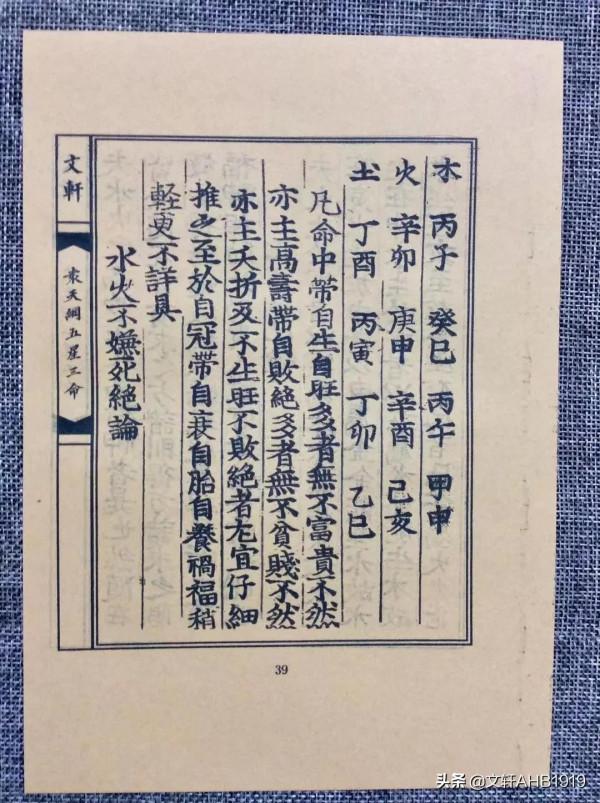 水 丙子 癸巳 丙午 甲申
火 辛卯 庚申 辛酉 己亥
土 丁酉 丙寅 丁卯 乙巳
凡命中帶自生自旺多者無不富貴不然
亦主高壽帶自敗絕多者無不貧賤不然
亦主夭折及不生旺不敗絕者尤宜仔細
推之至於自冠帶自衰自胎自養禍福稍
軽更不詳具
水火不嫌死絕論
文軒
袁天綱五星三命
39
头条 @文轩AHB1919